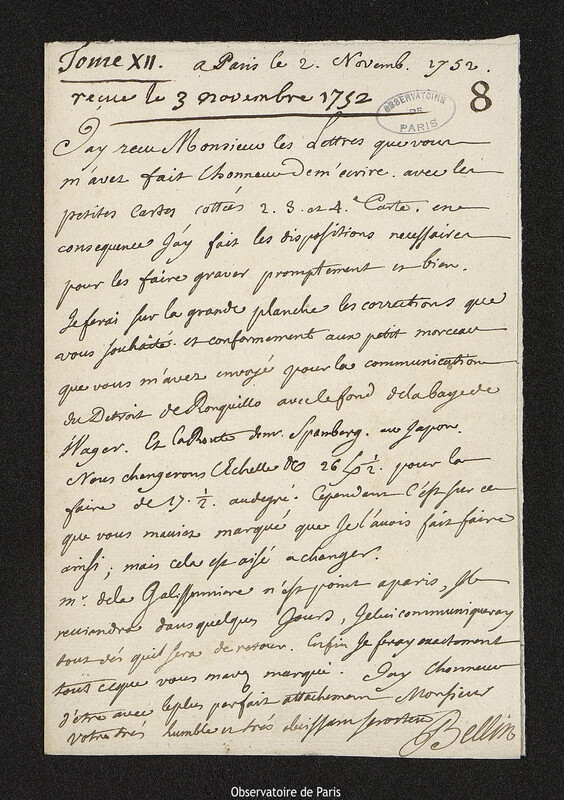 Tome XII. a Paris le 2. Novemb. 1752.
reçue le 3 novembre 1752
OBSERVATOIRE DE PARIS
8
J'ay receu Monsieur les Lettres que vous
m'avez fait l'honneur de m'ecrire. avec les
petites Cartes cottées 2. 3. et 4.e Carte. en
consequence J'ay fait les dispositions necessaires
pour les faire graver promptement et bien.
Je ferai sur la grande planche les corrections que
vous souhaité. et conformement aux petit morceau
que vous m'avez envoyé pour la communication
du Detroit de Ronquillo avec le fond de la baye de
Wager. Et la Route de mr. Spanberg. au Japon.
Nous changerons l'Echelle de 26 1/2. pour la
faire de 17. 1/2. au degré. Cependant C'est sur ce
que vous m'aviez marqué que Je l'avois fait faire
ainsi; mais cela est aisé a changer.
mr. de la Galissonniere n'est point a paris, Il
reviendra dans quelques Jours, Je lui communiqueray
tout dés qu'il sera de retour. Enfin Je feray exactement
tout ce que vous m'avez marqué. J'ay l'honneur
d'être avec le plus parfait attachement Monsieur
votre trés humble et trés obeissant serviteur
Bellin
Observatoire de Paris